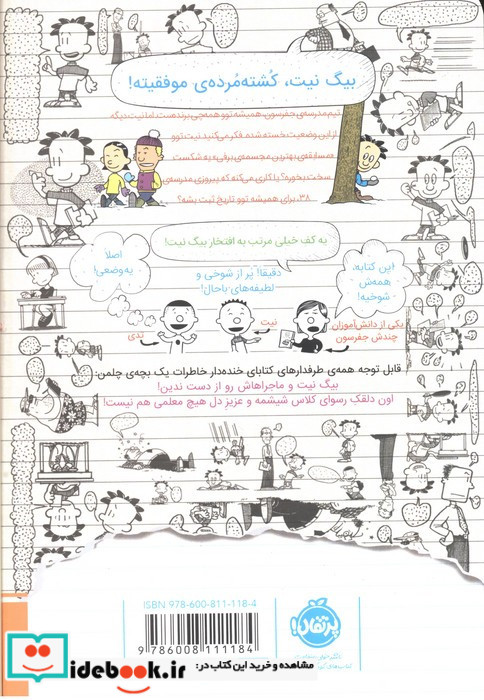 بیگ نیت، کُشته‌مُرده‌ی موفقیته!
تیم مدرسه‌ی جفرسون، همیشه توو همه‌چی برنده‌ست. اما نیت دیگه
از این وضعیت خسته شده. فکر می‌کنید نیت توو
مسابقه‌ی بهترین مجسمه‌ی برفی، یه شکست
سخت بخوره؟ یا کاری می‌کنه که پیروزی مدرسه‌ی
۳۸، برای همیشه توو تاریخ ثبت بشه؟
یه کف خیلی مرتب به افتخار بیگ نیت!
این کتابه،
همه‌ش
شوخیه!
دقیقاً! پُر از شوخی و
لطیفه‌های باحال!
اصلاً
یه‌وضعی!
یکی از دانش‌آموزان
چندش جفرسون
نیت
تدی
قابل توجه همه‌ی طرفدارهای کتابای خنده‌دار خاطرات یک بچه‌ی چلمن.
بیگ نیت و ماجراهاش رو از دست ندین!
اون دلقک رسوای کلاس شیشمه و عزیز دل هیچ معلمی هم نیست!
ISBN 978-600-811-118-4
9 786008 111184
پرتقال!
idebook.ir
مشاهده و خرید این کتاب در: